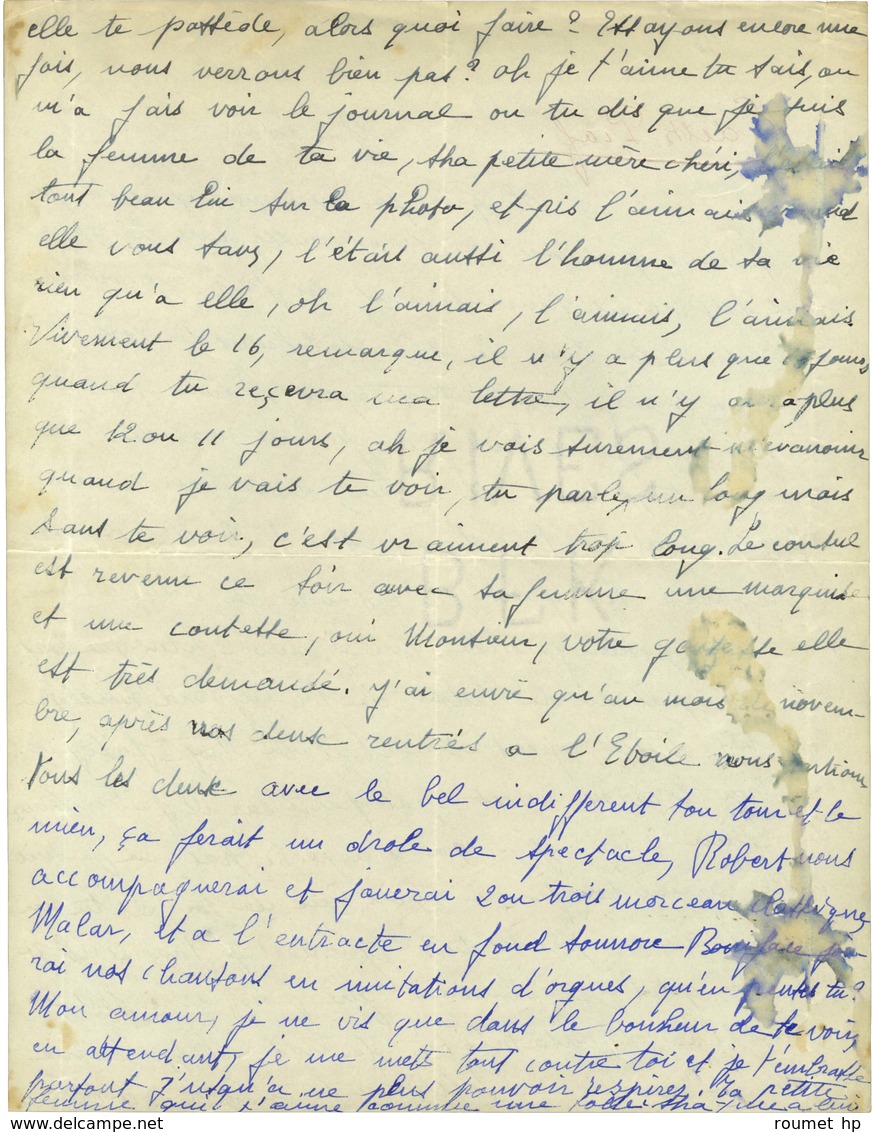 elle te possède, alors quoi faire? Essayons encore une
fois, nous verrons bien pas? oh je t'aime tu sais, on
m'a fais voir le journal ou tu dis que je suis
la femme de ta vie, sha petite mère chéri,
tout beau lui sur la photo, et pis l'aimais
elle vous savez, l'étais aussi l'homme de sa vie
rien qu'a elle, oh l'aimais, l'aimais, l'aimais.
Vivement le 16, remarque, il n'y a plus que jours,
quand tu reçevra ma lettre, il n'y aura plus
que 12 ou 11 jours, oh je vais surement m'évanoir
quand je vais te voir, tu parle, un long mois
sans te voir, c'est vraiment trop long. Le consul
est revenu ce soir avec sa femme une marquise
et une contesse, oui Monsieur, votre elle
est très demandé. J'ai envie qu'au mois de novem-
bre, après nos deux rentrés a l'Etoile nous partions
tous les deux avec le bel indifferent ton tour et le
mien, ça ferait un drole de spectacle, Robert nous
accompagnerai et jouerai 2 ou trois morceau classique,
Malar, et a l'entracte en fond sonnore Boniface joue-
rai nos chansons en imitations d'orgues, qu'en penses tu?
Mon amour, je ne vis que dans le bonheur de te voir,
en attendant, je me mets tout contre toi et je t'embrasse
partout j'usqu'a ne plus pouvoir respirer. Ta petite
femme qui t'aime comme une folle. sha
roumet hp